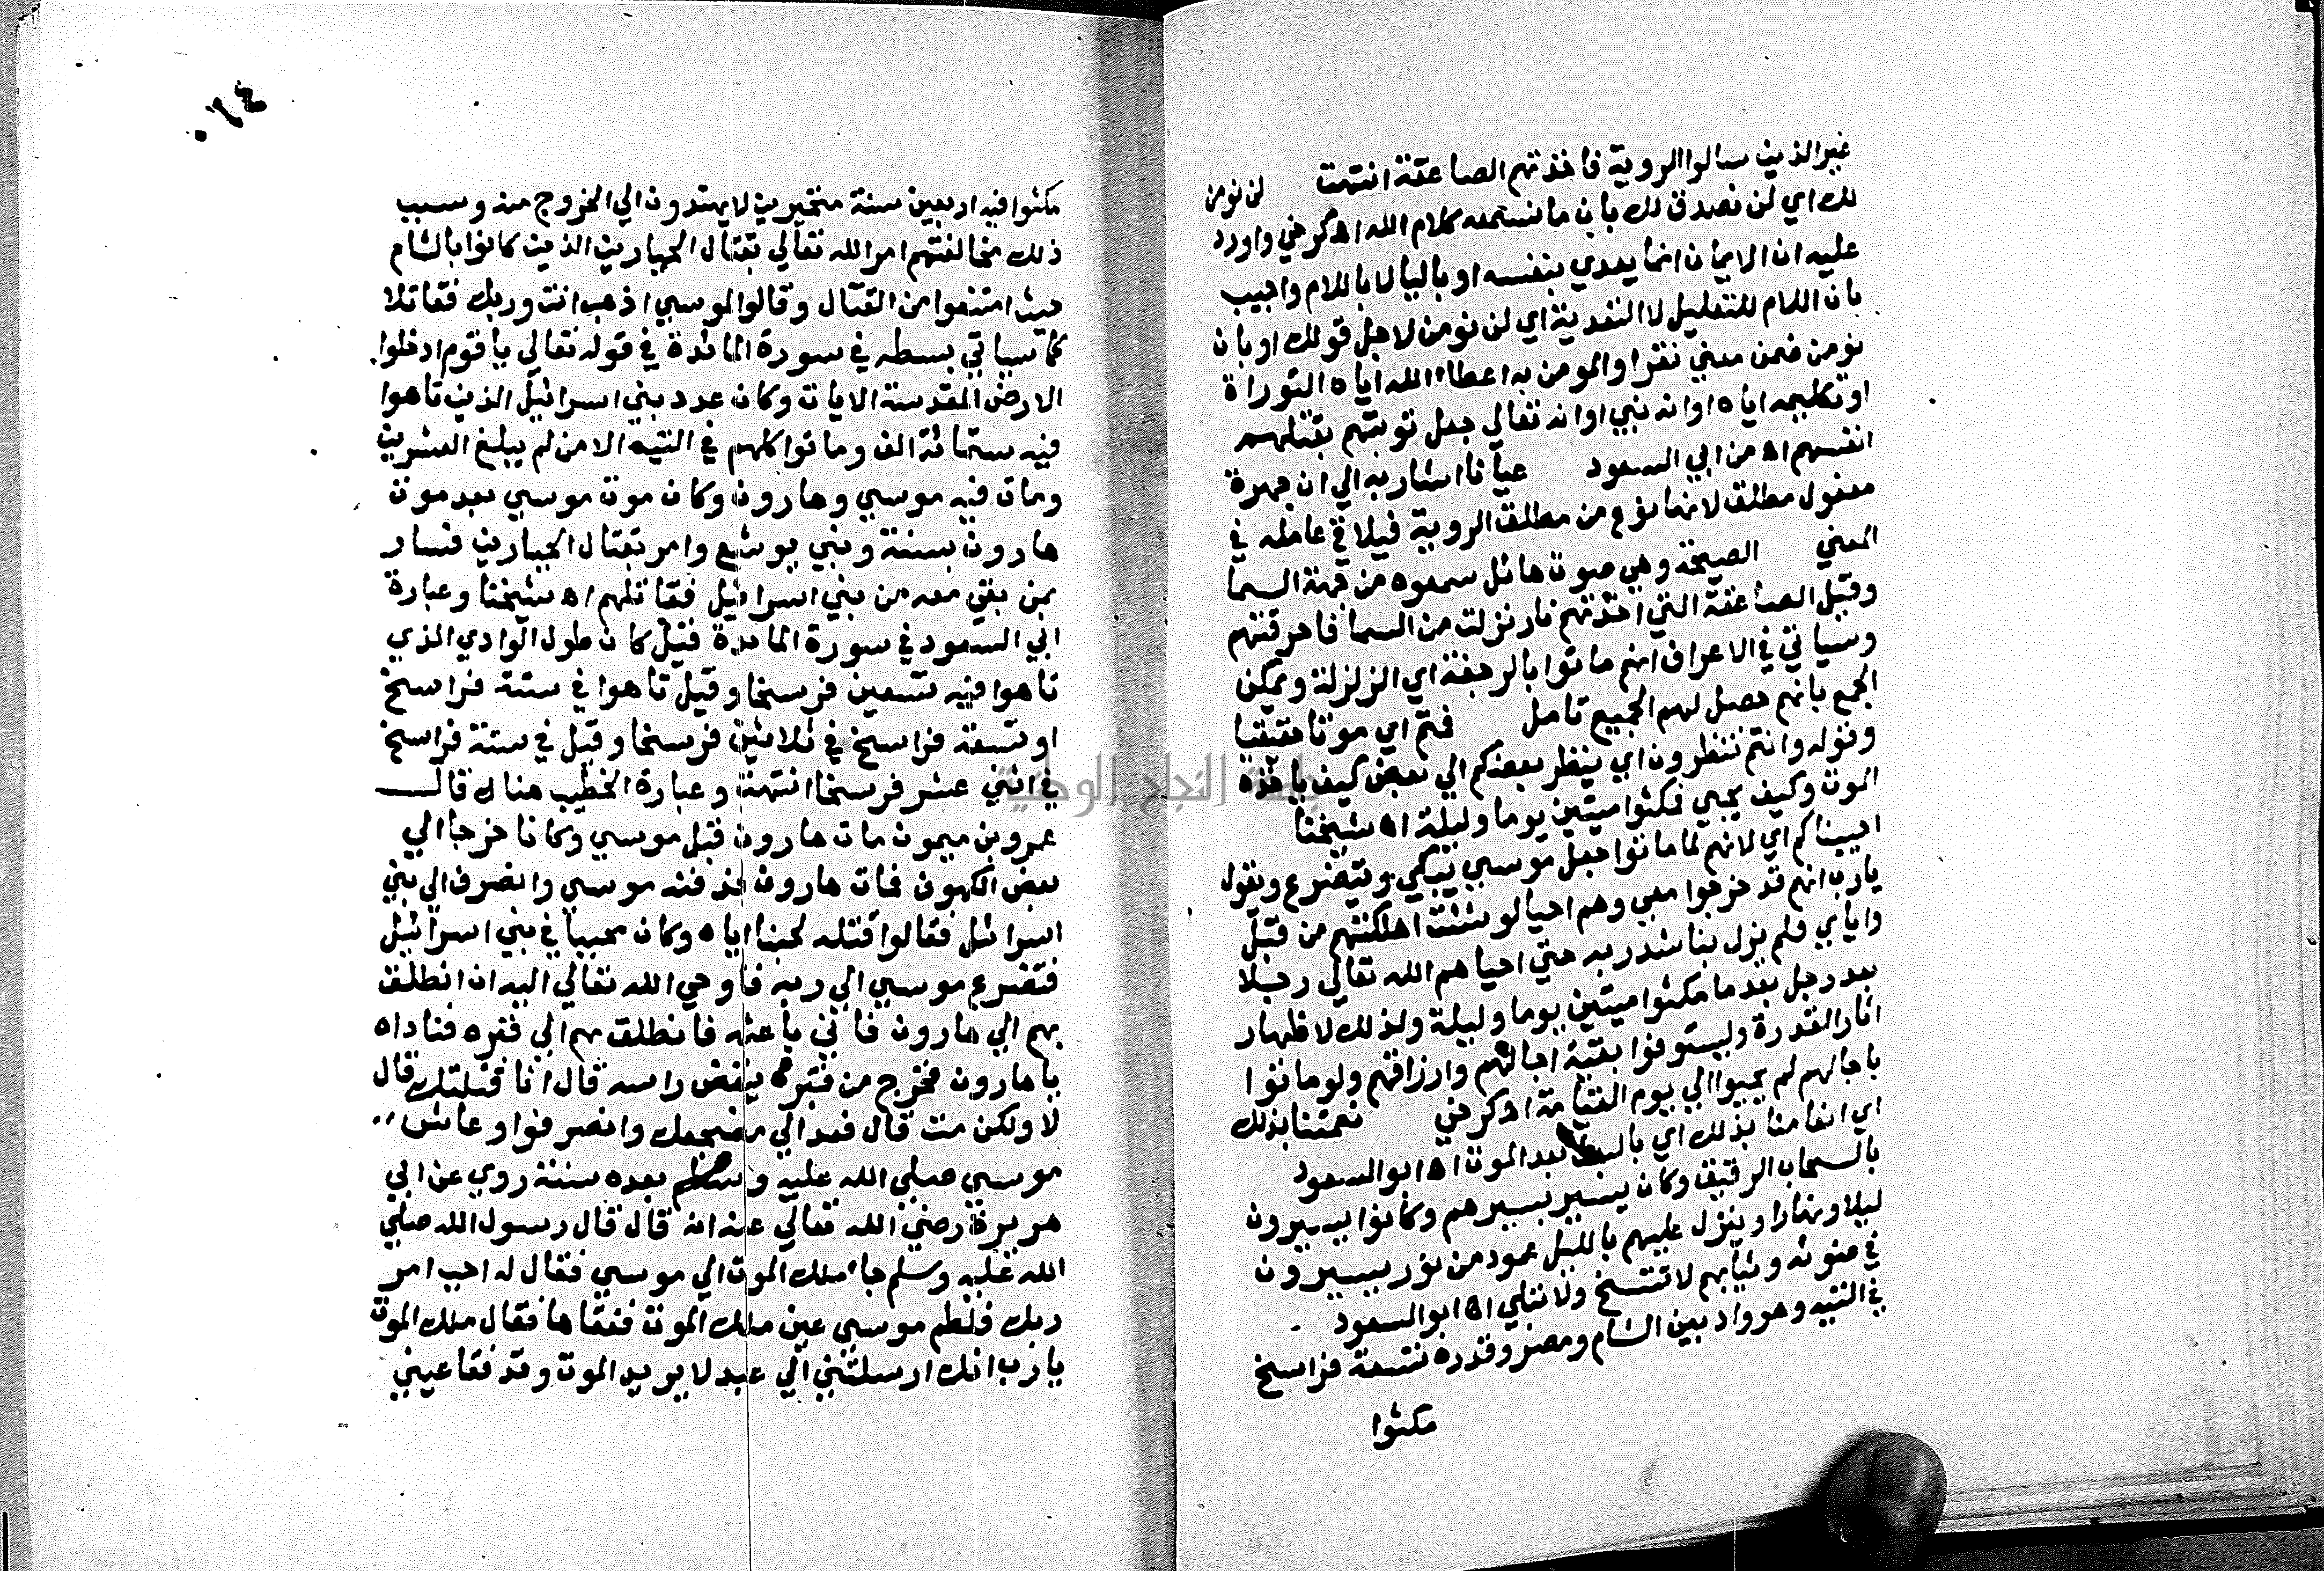 غير الذين سالوا الروية فاخذتهم الصاعقة انتهت لن نومن
لك اي لن نصدق لك بان ما نستمعه كلام الله اه كرخي واورد
عليه ان الايمان انما يعدي بنفسه او بالبا لا باللام واجيب
بان اللام للتعليل لا التعدية اي لن نومن لاجل قولك او بان
نومن ضمن معني نقر او المومن به اعطاء الله اياه التوراة
او تكليمه اياه او انه نبي او انه تعالي جعل توبتهم بقتلهم
انفسهم اه من ابي السعود عيانا اشار به الي ان جهرة
مفعول مطلق لانها نوع من مطلق الروية فيلاقي عامله في
المعني الصيحة وهي صوت هائل سمعوه من جهة السما
وقيل الصاعقة التي اخذتهم نار نزلت من السما فاحرقتهم
وسياتي في الاعراف انهم ماتوا بالرجفة اي الزلزلة ويمكن
الجمع بانهم حصل لهم الجميع تامل فتم اي موتا حقيقيا
وقوله وانتم تنظرون اي ينظر بعضكم الي بعض كيف ياخذه
الموت وكيف يحيي فمكثوا ميتين يوما وليلة اه شيخنا
احييناكم اي لانهم لما ماتوا جعل موسي يبكي ويتضرع ويقول
يارب انهم قد خرجوا معي وهم احيا لو شئت اهلكتهم من قبل
واياي فلم يزل يناشد ربه حتي احياهم الله تعالي رجلا
بعد رجل بعد ما مكثوا ميتين يوما وليلة وذلك لاظهار
اثار القدرة وليستوفوا بقية اجالهم وارزاقهم ولو ماتوا
باجالهم لم يحيوا الي يوم القيامة اه كرخي نعمتنا بذلك
اي انعامنا بذلك اي بالبعث بعد الموت اه ابو السعود
بالسحاب الرقيق وكان يسير بسيرهم وكانوا يسيرون
ليلا ونهارا وينزل عليهم بالليل عمود من نور يسيرون
في ضوئه وثيابهم لا تتسخ ولا تبلي اه ابو السعود
في التيه وهو واد بين الشام ومصر وقدره تسعة فراسخ
مكثوا
٠٦٤
مكثوا فيه اربعين سنة متحيرين لا يهتدون الي الخروج منه وسبب
ذلك مخالفتهم امر الله تعالي بقتال الجبارين الذين كانوا بالشام
حيث امتنعوا من القتال وقالوا لموسي اذهب انت وربك فقاتلا
كما سياتي بسطه في سورة المائدة في قوله تعالي ياقوم ادخلوا
الارض المقدسة الايات وكان عدد بني اسرائيل الذين تاهوا
فيه ستمائة الف وماتوا كلهم في التيه الا من لم يبلغ العشرين
ومات فيه موسي وهارون وكان موت موسي بعد موت
هارون بسنة ونبي يوشع وامر بقتال الجبارين فسار
بمن بقي معه من بني اسرائيل فقاتلهم اه شيخنا وعبارة
ابي السعود في سورة المائدة قيل كان طول الوادي الذي
تاهوا فيه تسعين فرسخا وقيل تاهوا في ستة فراسخ
او تسعة فراسخ في ثلاثين فرسخا وقيل في ستة فراسخ
في اثني عشر فرسخا انتهت وعبارة الخطيب هناك قال
عمرو بن ميمون مات هارون قبل موسي وكانا خرجا الي
بعض الكهوف فمات هارون فدفنه موسي وانصرف الي بني
اسرائيل فقالوا قتله لحبنا اياه وكان محببا في بني اسرائيل
فتضرع موسي الي ربه فاوحي الله تعالي اليه ان انطلق
بهم الي هارون فاني باعثه فانطلق بهم الي قبره فناداه
ياهارون فخرج من قبره ينفض راسه قال انا قتلتك قال
لا ولكن مت قال فعد الي مضجعك وانصرفوا وعاش
موسي صلي الله عليه وسلم بعده سنة روي عن ابي
هريرة رضي الله تعالي عنه انه قال قال رسول الله صلي
الله عليه وسلم جاء ملك الموت الي موسي فقال له اجب امر
ربك فلطم موسي عين ملك الموت ففقاها فقال ملك الموت
يارب انك ارسلتني الي عبد لا يريد الموت وقد فقا عيني
جامعة النجاح الوطنية